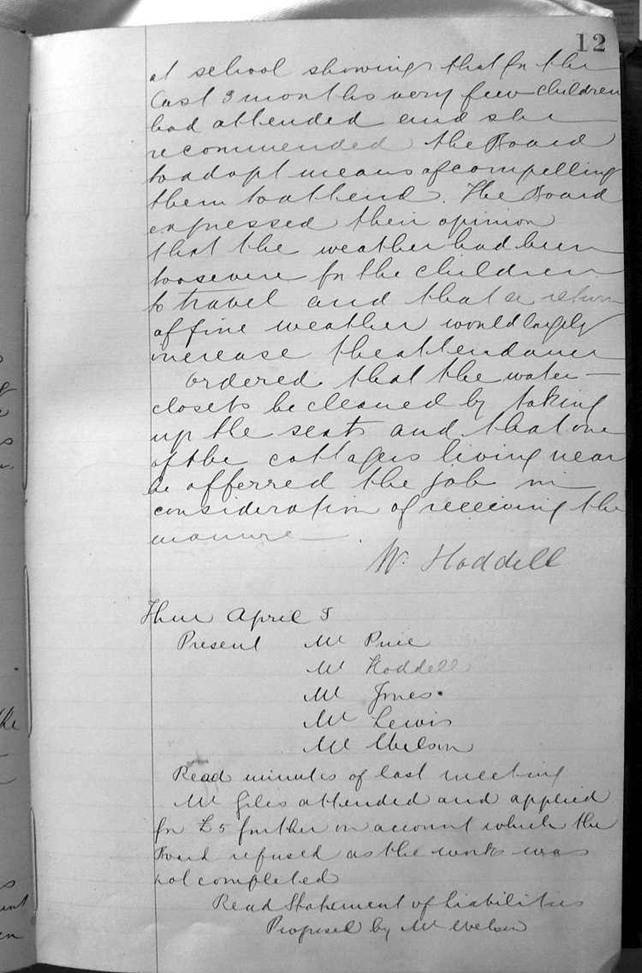 12
at school showing that for the
last 3 months very few children
had attended and she
recommended the Board
to adopt means of compelling
them to attend. The Board
expressed their opinion
that the weather had been
too severe for the children
to travel and that a return
of fine weather would largely
increase the attendance
ordered that the water-
closets be cleaned by taking
up the seats and that one
of the cottagers living near
be offerred the job in
consideration of receiving the
manure
W. Hoddell
Thur April 5
Present Mr Price
Mr Hoddell
Mr Jones
Mr Lewis
Mr
Read minutes of last meeting
Mr Giles attended and applied
for £5 further on account which the
Board refused as the work was
not completed
Read Statement of liabilities
Proposed by Mr